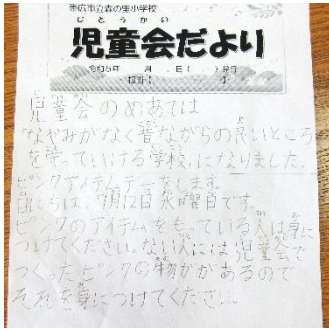 帯広市立森の里小学校
じどうかい
児童会だより
令和5年 月 日( )発行
児童会のめあては
なやみがなく昔ながらの良いところ
を守っていける学校になりました。
ピンクアイテムデーをします。
日にちは、7月12日水曜日です。
ピンクのアイテムをもっている人は身に
つけてください。ない人には児童会で
つくったピンクの物があるので
それを身につけてください。